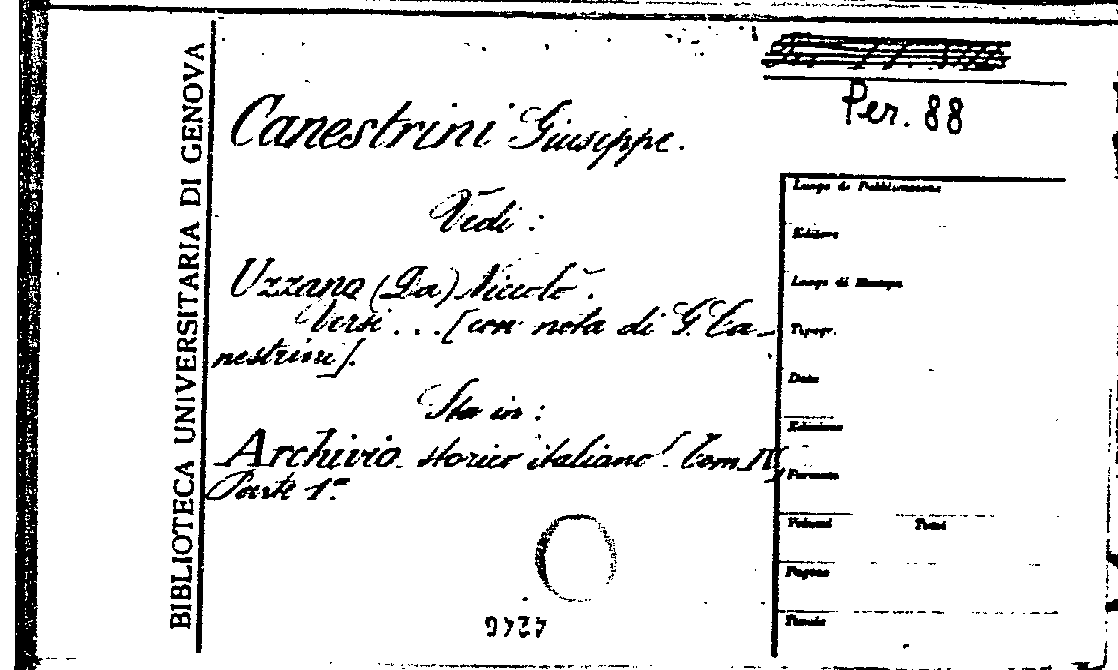 BIBLIOTECA UNIVERSITARIA DI GENOVA
Per. 88
Canestrini Giuseppe.
Vedi :
Uzzano (Da) Niccolò.
Versi . . . [con nota di G. Ca-
nestrini].
Sta in :
Archivio storico italiano. Tom. IV,
Parte 1ª
Luogo di Pubblicazione
Editore
Luogo di Stampa
Tipogr.
Data
Edizione
Formato
Volumi Tomi
Pagine
Tavole